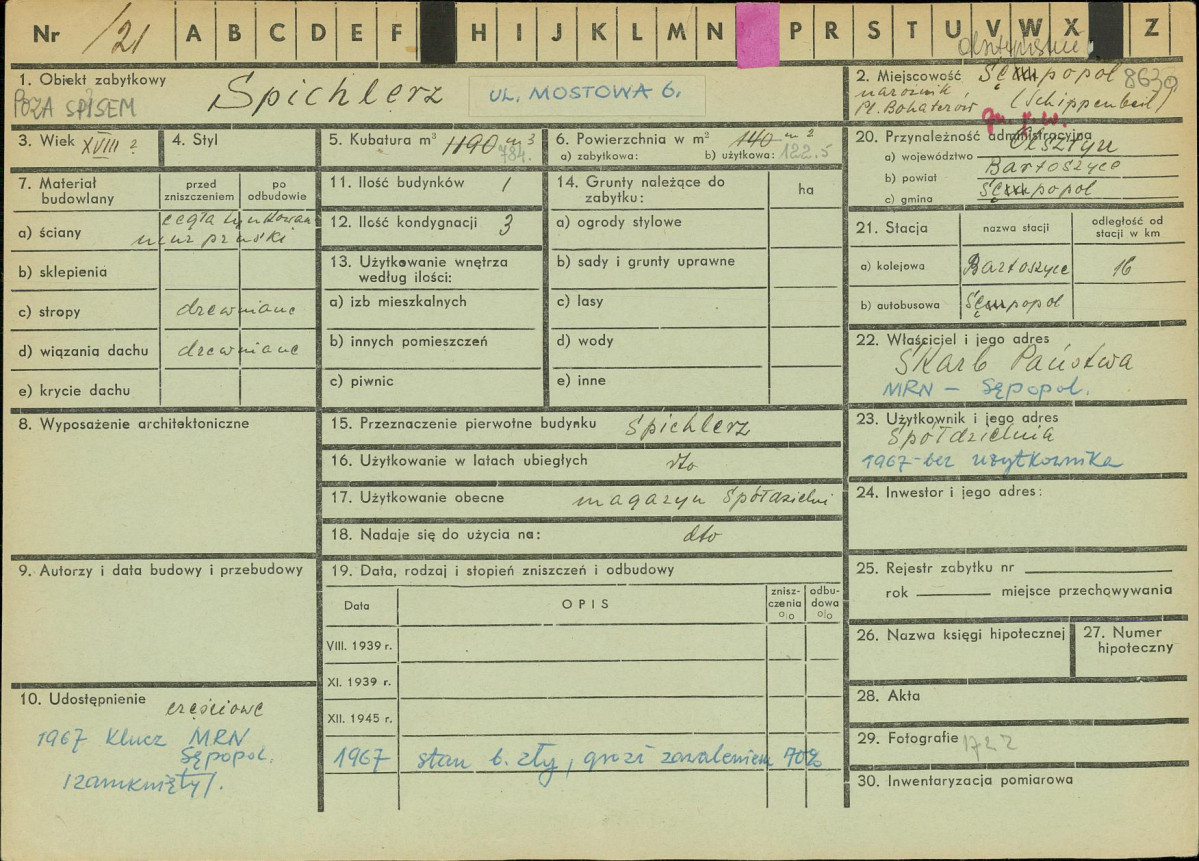 Nr /21 A B C D E F H I J K L M N P R S T U V W X Z
1. Obiekt zabytkowy
POZA SPISEM
Spichlerz
UL. MOSTOWA 6.
2. Miejscowość Sępopol 8630
narożnik
Pl. Bohaterów (Schippenbeil)
3. Wiek XVIII ?
4. Styl
5. Kubatura m³ 1190 m³
784.
6. Powierzchnia w m² 140 m²
a) zabytkowa: b) użytkowa: 122.5
20. Przynależność administracyjna
a) województwo Olsztyn
b) powiat Bartoszyce
c) gmina Sępopol
7. Materiał budowlany
przed zniszczeniem
po odbudowie
a) ściany cegła tynkowana
mur pruski
b) sklepienia
c) stropy drewniane
d) wiązania dachu drewniane
e) krycie dachu
11. Ilość budynków 1
12. Ilość kondygnacji 3
13. Użytkowanie wnętrza
według ilości:
a) izb mieszkalnych
b) innych pomieszczeń
c) piwnic
14. Grunty należące do
zabytku:
ha
a) ogrody stylowe
b) sady i grunty uprawne
c) lasy
d) wody
e) inne
21. Stacja
nazwa stacji
odległość od
stacji w km
a) kolejowa Bartoszyce 16
b) autobusowa Sępopol
22. Właściciel i jego adres
Skarb Państwa
MRN – Sępopol.
8. Wyposażenie architektoniczne
15. Przeznaczenie pierwotne budynku spichlerz
16. Użytkowanie w latach ubiegłych dto
17. Użytkowanie obecne magazyn Spółdzielni
18. Nadaje się do użycia na: dto
23. Użytkownik i jego adres
Spółdzielnia
1967-bez użytkownika
24. Inwestor i jego adres:
9. Autorzy i data budowy i przebudowy
19. Data, rodzaj i stopień zniszczeń i odbudowy
Data
OPIS
znisz-
czenia
%
odbu-
dowa
%
VIII. 1939 r.
XI. 1939 r.
XII. 1945 r.
1967 stan b. zły, grozi zawaleniem 70%
25. Rejestr zabytku nr
rok miejsce przechowywania
26. Nazwa księgi hipotecznej
27. Numer
hipoteczny
28. Akta
29. Fotografie 1722
30. Inwentaryzacja pomiarowa
10. Udostępnienie
częściowe
1967 klucz MRN
Sępopol.
/zamknięty/.